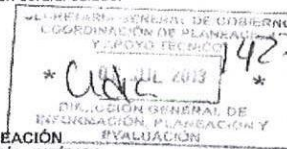 SECRETARIA GENERAL DE GOBIERNO
COORDINACIÓN DE PLANEACIÓN
Y APOYO TECNICO
142
* JUL 2013 *
DIRECCIÓN GENERAL DE
INFORMACIÓN, PLANEACIÓN Y
EVALUACIÓN
EACIÓN